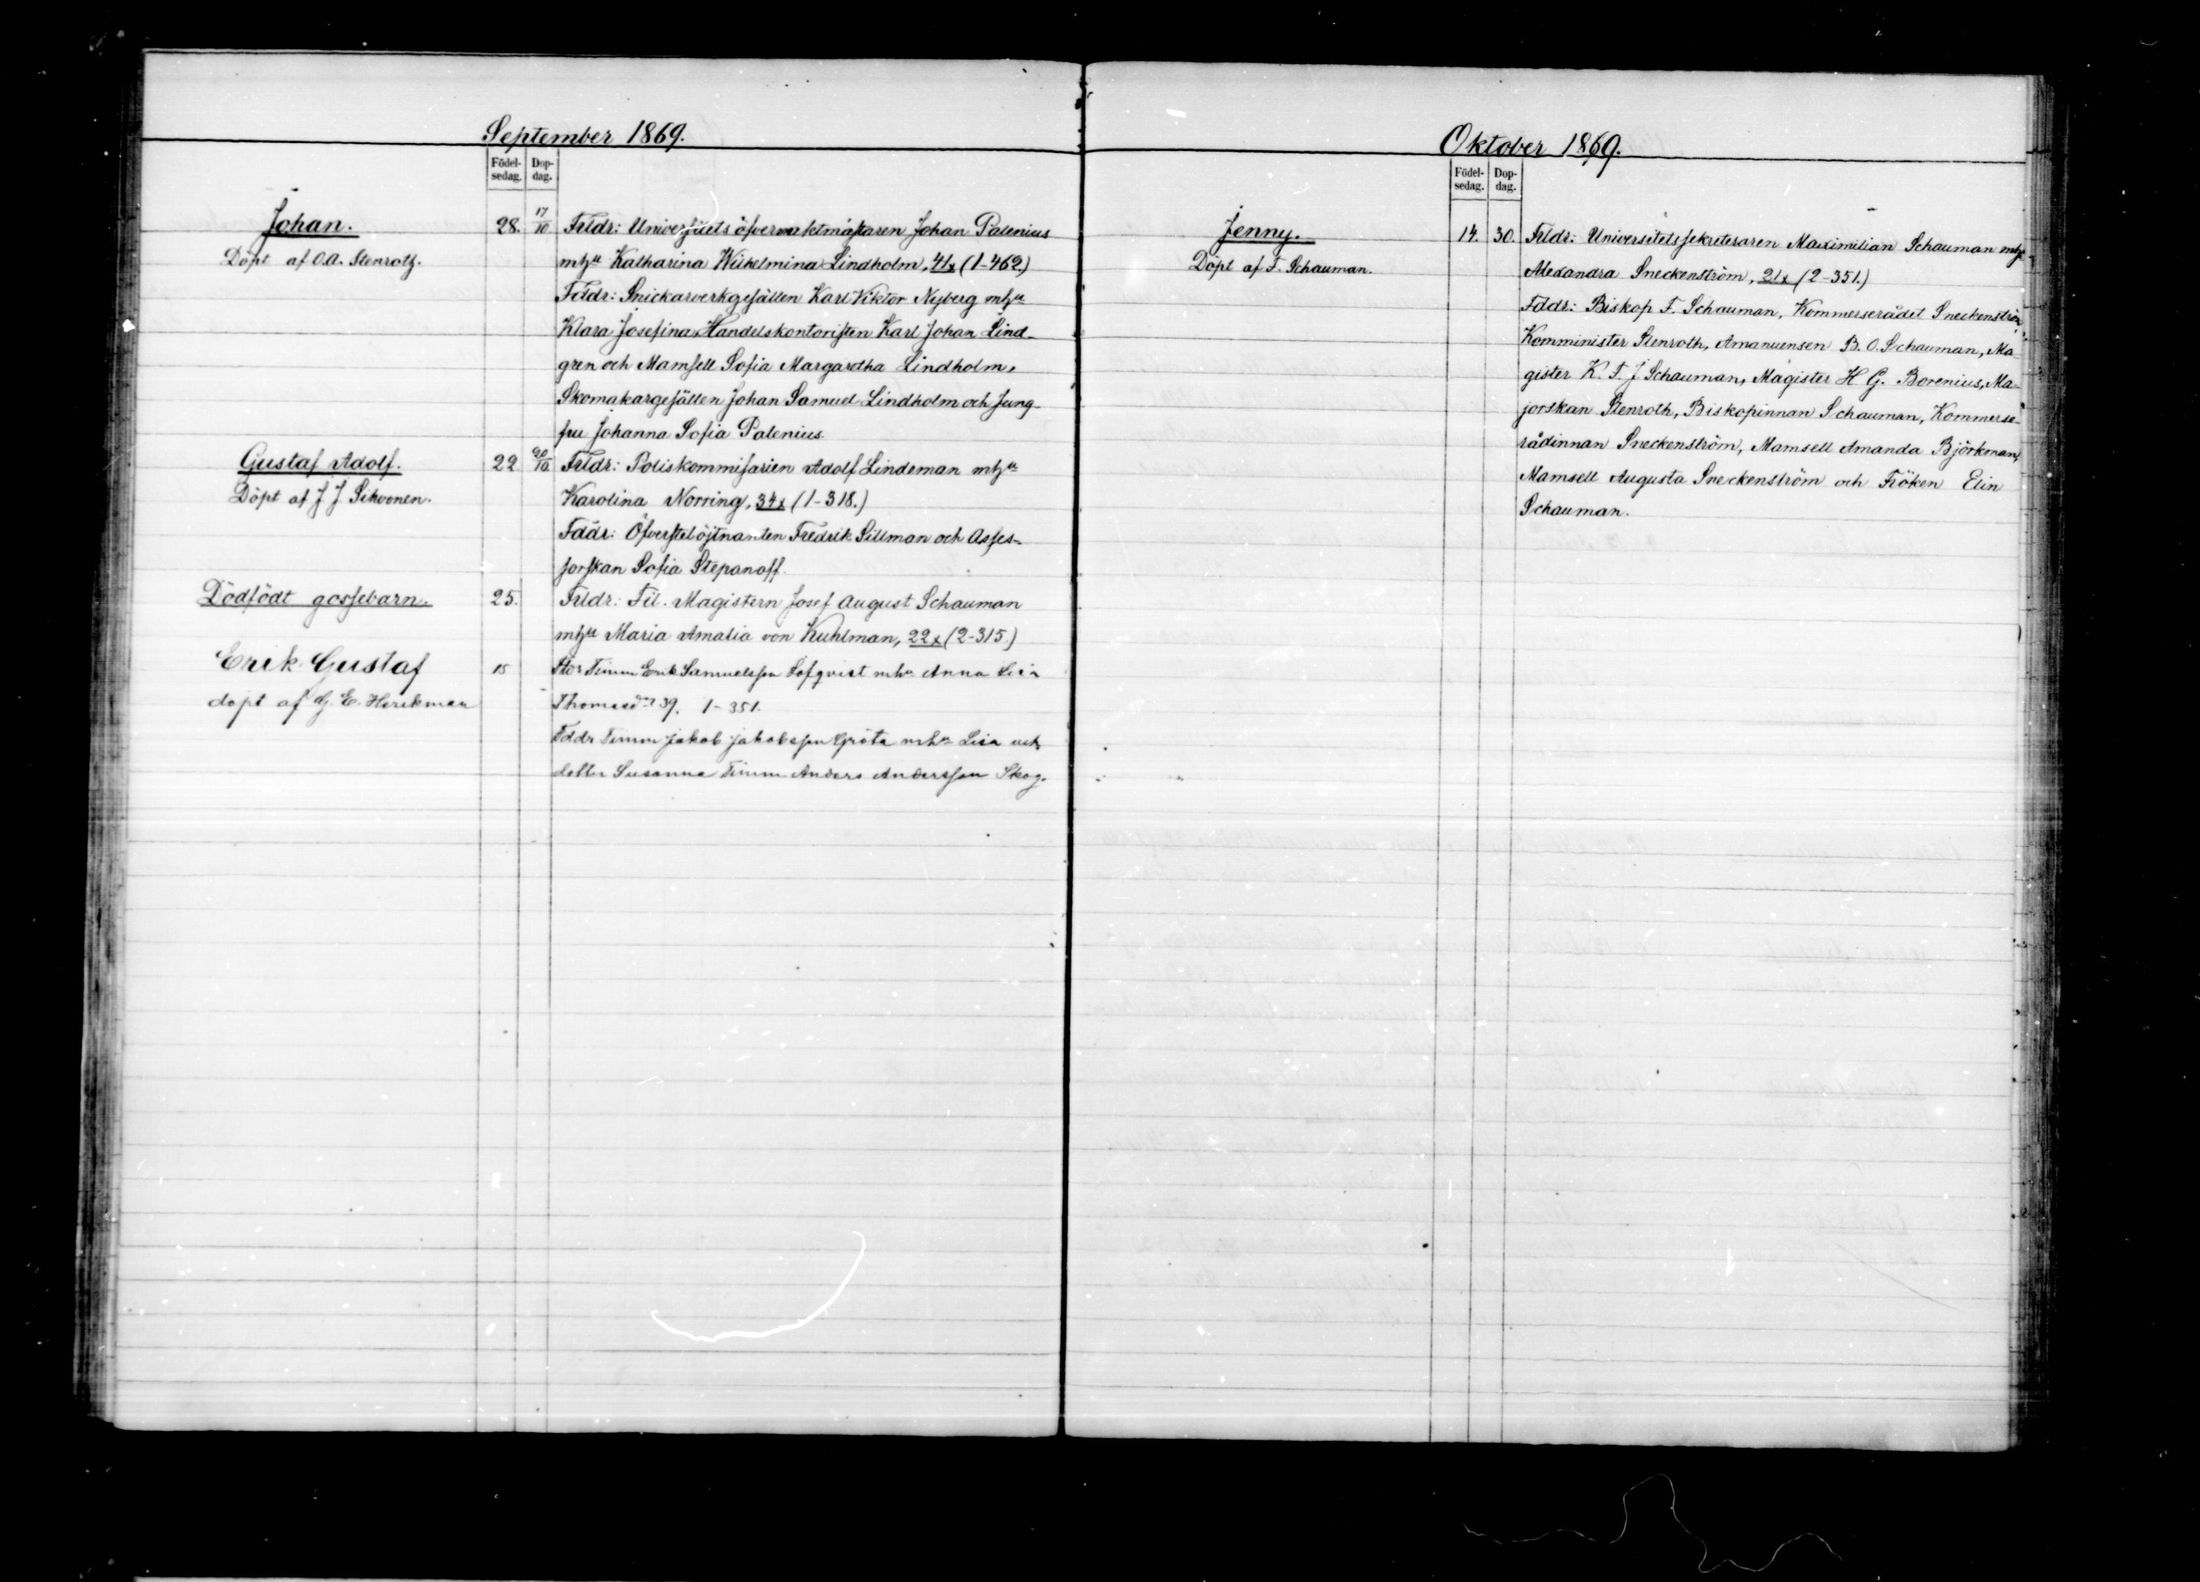 September 1869.
Födel-
sedag.
Dop-
dag.
Johan.
Döpt af O.A. Stenroth.
28.
17/10
Frldr: Universitets öfvervaktmästaren Johan Palenius
mhu Katharina Wilhelmina Lindholm, 41x (1-462)
Fddr: Snickarverkgesällen Karl Viktor Nyberg mhu
Klara Josefina, Handelskontoristen Karl Johan Lind-
gren och Mamsell Sofia Margaretha Lindholm,
Skomakargesällen Johan Samuel Lindholm och Jung-
fru Johanna Sofia Palenius.
Gustaf Adolf.
Döpt af J J. Sihvonen.
22
20/10
Frldr: Poliskommisarien Adolf Lindeman mhu
Karolina Norring, 34x (1-318.)
Fddr: Öfverstelöjtnanten Fredrik Sillman och Asses-
sorskan Sofia Stepanoff.
Dödfödt gossebarn.
25.
Frldr: Fil. Magistern Josef August Schauman
mhu Maria Amalia von Kuhlman, 22x (2-315)
Erik Gustaf
döpt af G. E. Herckman
15
Timm Erik Samuelsson Löfqvist mhu Anna Lisa
Thomasdr 39. 1-351.
Fddr Timm Jakob Jakobsson Gröta mhu Lisa och
dotter Susanna Timm Anders Andersson Skog.
Oktober 1869.
Födel-
sedag.
Dop-
dag.
Jenny.
Döpt af F. Schauman.
14.
30.
Frldr: Universitetssekreteraren Maximilian Schauman mhu
Alexandra Sneckenström, 21x (2-351.)
Fddr: Biskop F. Schauman, Kommerserådet Sneckenström
Komminister Stenroth, Amanuensen B. O. Schauman, Ma-
gister K. F. J Schauman, Magister H G. Borenius, Ma-
jorskan Stenroth, Biskopinnan Schauman, Kommerse-
rådinnan Sneckenström, Mamsell Amanda Björkman,
Mamsell Augusta Sneckenström och Fröken Elin
Schauman.